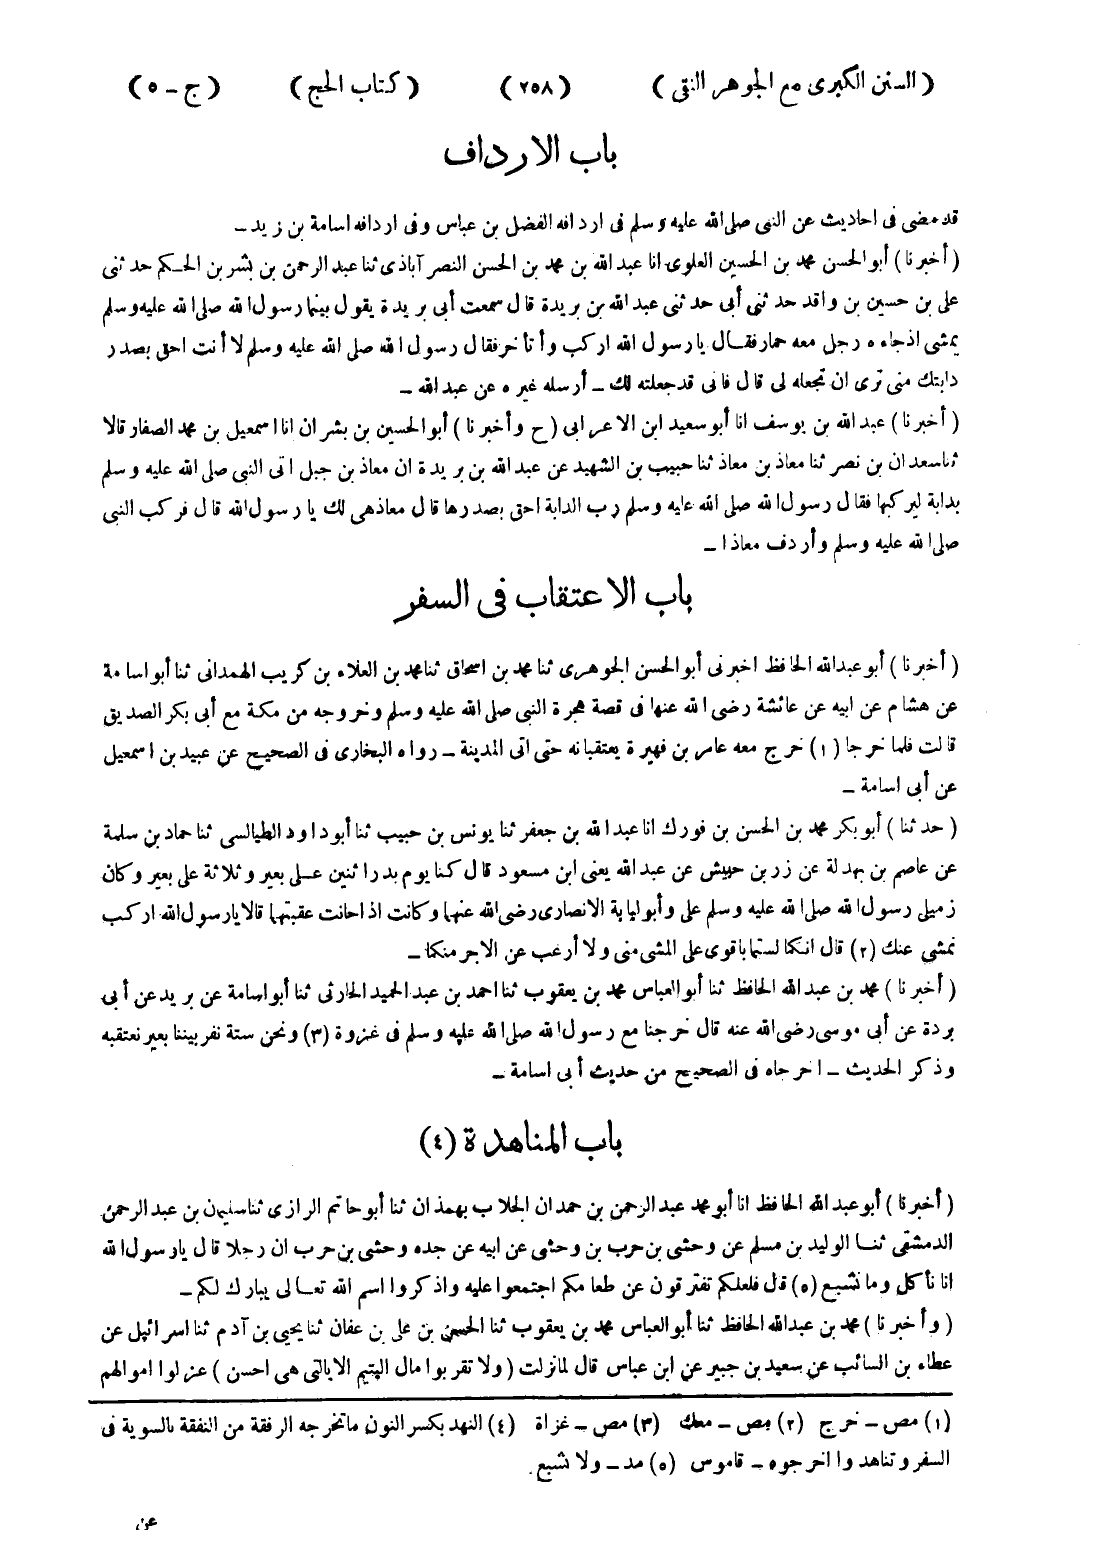 ( السنن الكبرى مع الجوهر النقى ) ( ٢٥٨ ) ( كتاب الحج ) ( ج - ٥ )
باب الارداف
قد مضى فى احاديث عن النبى صلى الله عليه وسلم فى اردافه الفضل بن عباس وفى اردافه اسامة بن زيد ـ
( أخبرنا ) أبو الحسن محمد بن الحسين العلوى انا عبد الله بن محمد بن الحسن النصر آباذى ثنا عبد الرحمن بن بشر بن الحكم حدثنى
على بن حسين بن واقد حدثنى أبى حدثنى عبد الله بن بريدة قال سمعت أبى بريدة يقول بينما رسول الله صلى الله عليه وسلم
يمشى اذ جاءه رجل معه حمار فقال يا رسول الله اركب وأتأخر فقال رسول الله صلى الله عليه وسلم لا أنت احق بصدر
دابتك منى ترى ان تجعله لى قال فانى قد جعلته لك ـ أرسله غيره عن عبد الله ـ
( أخبرنا ) عبد الله بن يوسف انا أبو سعيد ابن الاعرابى ( ح وأخبرنا ) أبو الحسين بن بشران انا اسمعيل بن محمد الصفار قالا
ثنا سعدان بن نصر ثنا معاذ بن معاذ ثنا حبيب بن الشهيد عن عبد الله بن بريدة ان معاذ بن جبل اتى النبى صلى الله عليه وسلم
بدابة ليركبها فقال رسول الله صلى الله عليه وسلم رب الدابة احق بصدرها قال معاذ هى لك يا رسول الله قال فركب النبى
صلى الله عليه وسلم وأردف معاذا ـ
باب الاعتقاب فى السفر
( أخبرنا ) أبو عبد الله الحافظ اخبرنى أبو الحسن الجوهرى ثنا محمد بن اسحاق ثنا محمد بن العلاء بن كريب الهمدانى ثنا أبو اسامة
عن هشام عن ابيه عن عائشة رضى الله عنها فى قصة هجرة النبى صلى الله عليه وسلم وخروجه من مكة مع أبى بكر الصديق
قالت فلما خرجا (١) خرج معه عامر بن فهيرة يعتقبانه حتى اتى المدينة ـ رواه البخارى فى الصحيح عن عبيد بن اسمعيل
عن أبى اسامة ـ
( حدثنا ) أبو بكر محمد بن الحسن بن فورك انا عبد الله بن جعفر ثنا يونس بن حبيب ثنا أبو داود الطيالسى ثنا حماد بن سلمة
عن عاصم بن بهدلة عن زر بن حبيش عن عبد الله يعنى ابن مسعود قال كنا يوم بدر اثنين على بعير وثلاثة على بعير وكان
زميلى رسول الله صلى الله عليه وسلم على وأبو لبابة الانصارى رضى الله عنهما وكانت اذا حانت عقبتهما قالا يا رسول الله اركب
نمشى عنك (٢) قال انكما لستما باقوى على المشى منى ولا أرغب عن الاجر منكما ـ
( أخبرنا ) محمد بن عبد الله الحافظ ثنا أبو العباس محمد بن يعقوب ثنا احمد بن عبد الحميد الحارثى ثنا أبو اسامة عن بريد عن أبى
بردة عن أبى موسى رضى الله عنه قال خرجنا مع رسول الله صلى الله عليه وسلم فى غزوة (٣) ونحن ستة نفر بيننا بعير نعتقبه
وذكر الحديث ـ اخرجاه فى الصحيح من حديث أبى اسامة ـ
باب المناهدة (٤)
( أخبرنا ) أبو عبد الله الحافظ انا أبو محمد عبد الرحمن بن حمدان الجلاب بهمذان ثنا أبو حاتم الرازى ثنا سليمان بن عبد الرحمن
الدمشقى ثنا الوليد بن مسلم عن وحشى بن حرب بن وحشى عن ابيه عن جده وحشى بن حرب ان رجلا قال يا رسول الله
انا نأكل وما نشبع (٥) قال فلعلكم تفترقون عن طعامكم اجتمعوا عليه واذكروا اسم الله تعالى يبارك لكم ـ
( وأخبرنا ) محمد بن عبد الله الحافظ ثنا أبو العباس محمد بن يعقوب ثنا الحسن بن على بن عفان ثنا يحيى بن آدم ثنا اسرائيل عن
عطاء بن السائب عن سعيد بن جبير عن ابن عباس قال لما نزلت ( ولا تقربوا مال اليتيم الا بالتى هى احسن ) عزلوا اموالهم
(١) مص ـ خرج (٢) مص ـ معك (٣) مص ـ غزاة (٤) النهد بكسر النون ما تخرجه الرفقة من النفقة بالسوية فى
السفر وتناهدوا اخرجوه ـ قاموس (٥) مد ـ ولا شبع .
عن